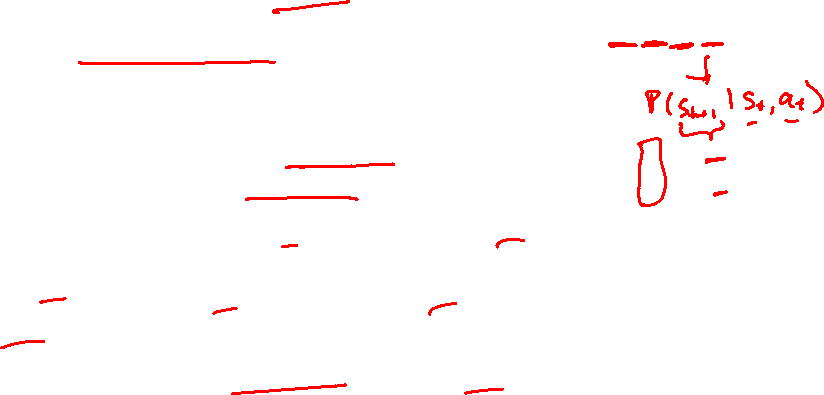 P(s_{t+1} | s_t, a_t)